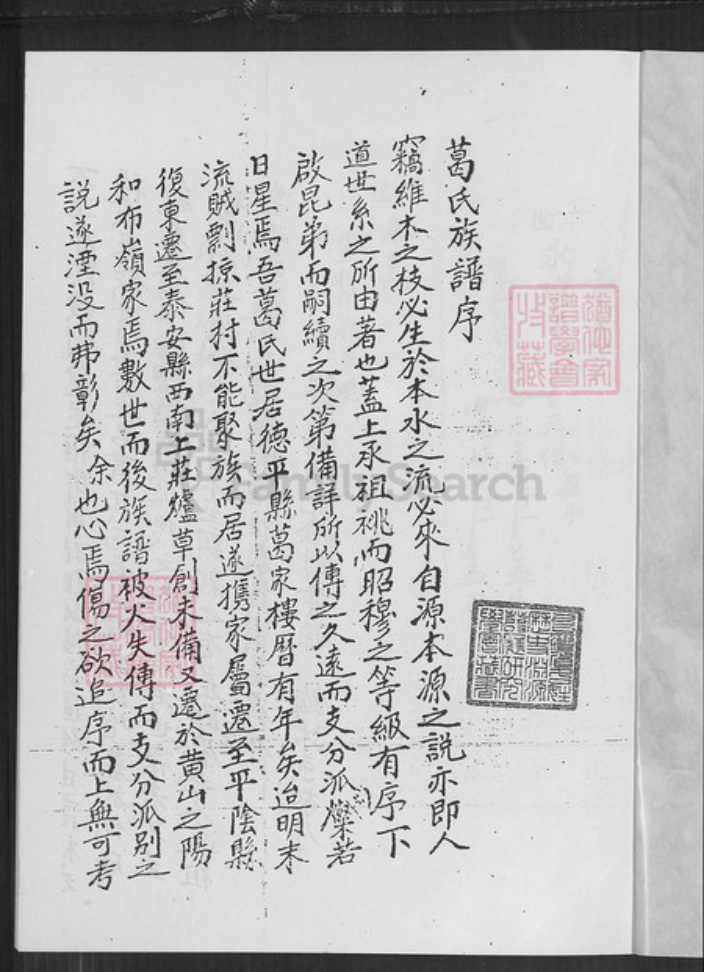 葛氏族譜序
竊維木之枝必生於本水之流必來自源本源之說亦即人
道世系之所由著也蓋上承祖祧而昭穆之等級有序下
啟昆弟而嗣續之次第備詳所以傳之久遠而支分派燦若
日星焉吾葛氏世居德平縣葛家樓曆有年矣迨明末
流賊剽掠莊村不能聚族而居遂携家屬遷至平陰縣
復東遷至泰安縣西南上莊爐草創未備又遷於黄山之陽
和布嶺家焉數世而後族譜被火失傳而支分派別之
說遂湮没而弗彰矣余也心焉傷之欲追序而上無可考
FamilySearch